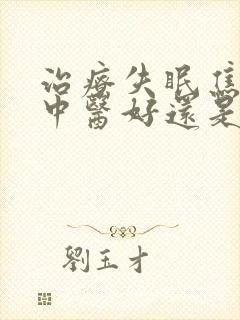 治療失眠焦
中醫好還是
劉玉才